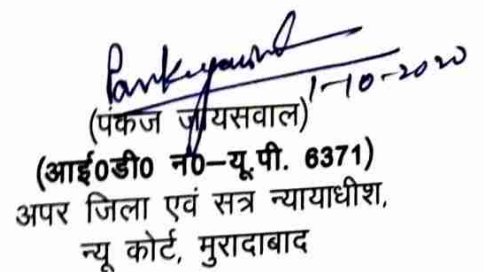 1-10-2020
(पंकज जायसवाल)
(आई0डी0 न0-यू.पी. 6371)
अपर जिला एवं सत्र न्यायाधीश,
न्यू कोर्ट, मुरादाबाद